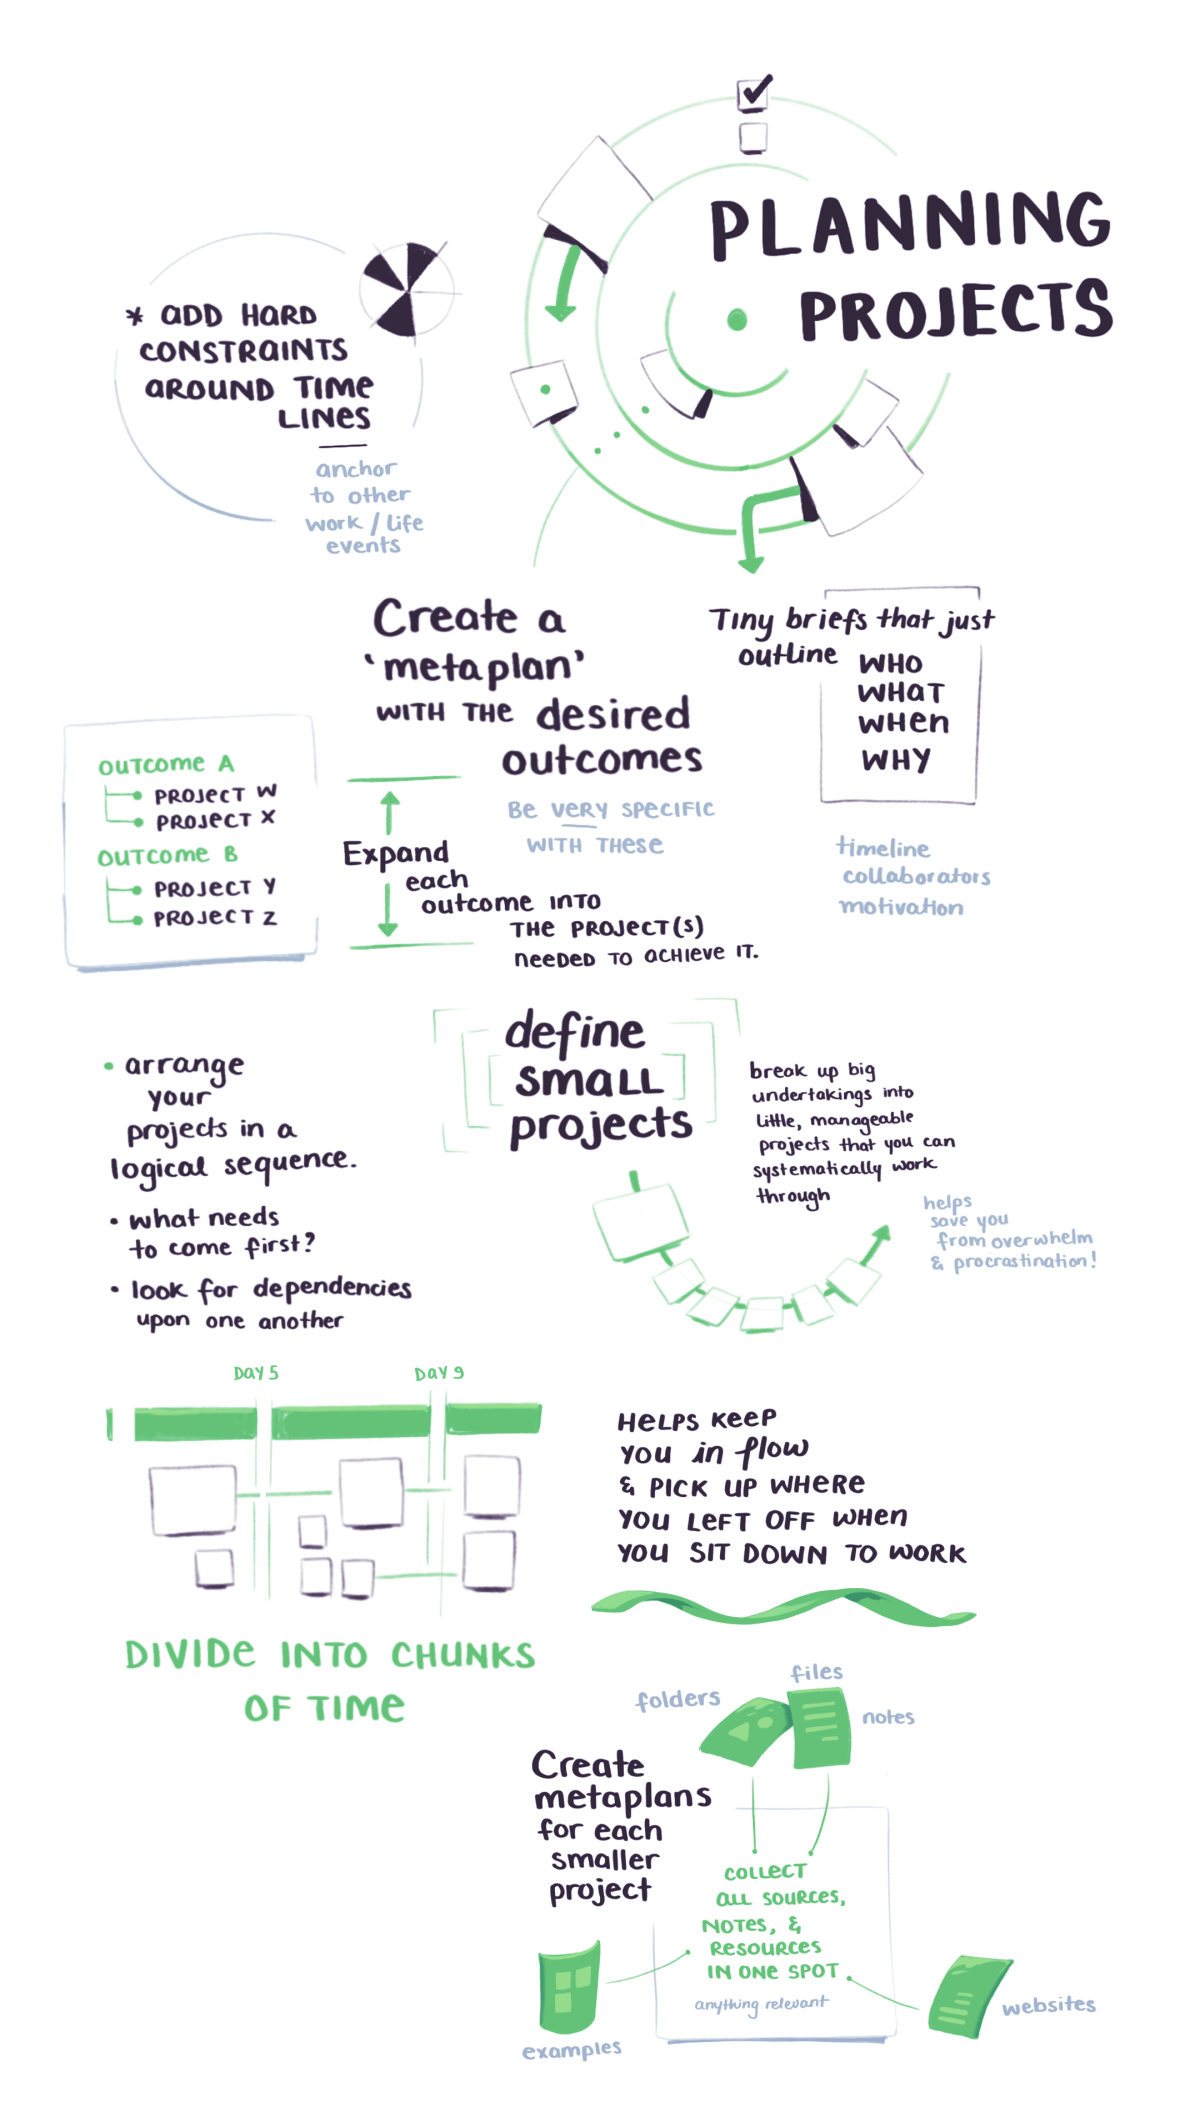 PLANNING
PROJECTS
* ADD HARD
CONSTRAINTS
AROUND TIME
LINES
anchor
to other
work / life
events
Create a
'metaplan'
WITH THE desired
outcomes
BE VERY SPECIFIC
WITH THESE
Tiny briefs that just
outline
WHO
WHAT
WHEN
WHY
timeline
collaborators
motivation
OUTCOME A
PROJECT W
PROJECT X
OUTCOME B
PROJECT Y
PROJECT Z
Expand
each
outcome INTO
THE PROJECT(S)
NEEDED TO ACHIEVE IT.
define
SMALL
projects
break up big
undertakings into
little, manageable
projects that you can
systematically work
through
helps
save you
from overwhelm
& procrastination!
• arrange
your
projects in a
logical sequence.
• what needs
to come first?
• look for dependencies
upon one another
DAY 5
DAY 9
DIVIDE INTO CHUNKS
OF TIME
HELPS KEEP
YOU in flow
& PICK UP WHERE
YOU LEFT OFF WHEN
YOU SIT DOWN TO WORK
folders
files
notes
Create
metaplans
for each
smaller
project
COLLECT
ALL SOURCES,
NOTES, &
RESOURCES
IN ONE SPOT
anything relevant
examples
websites